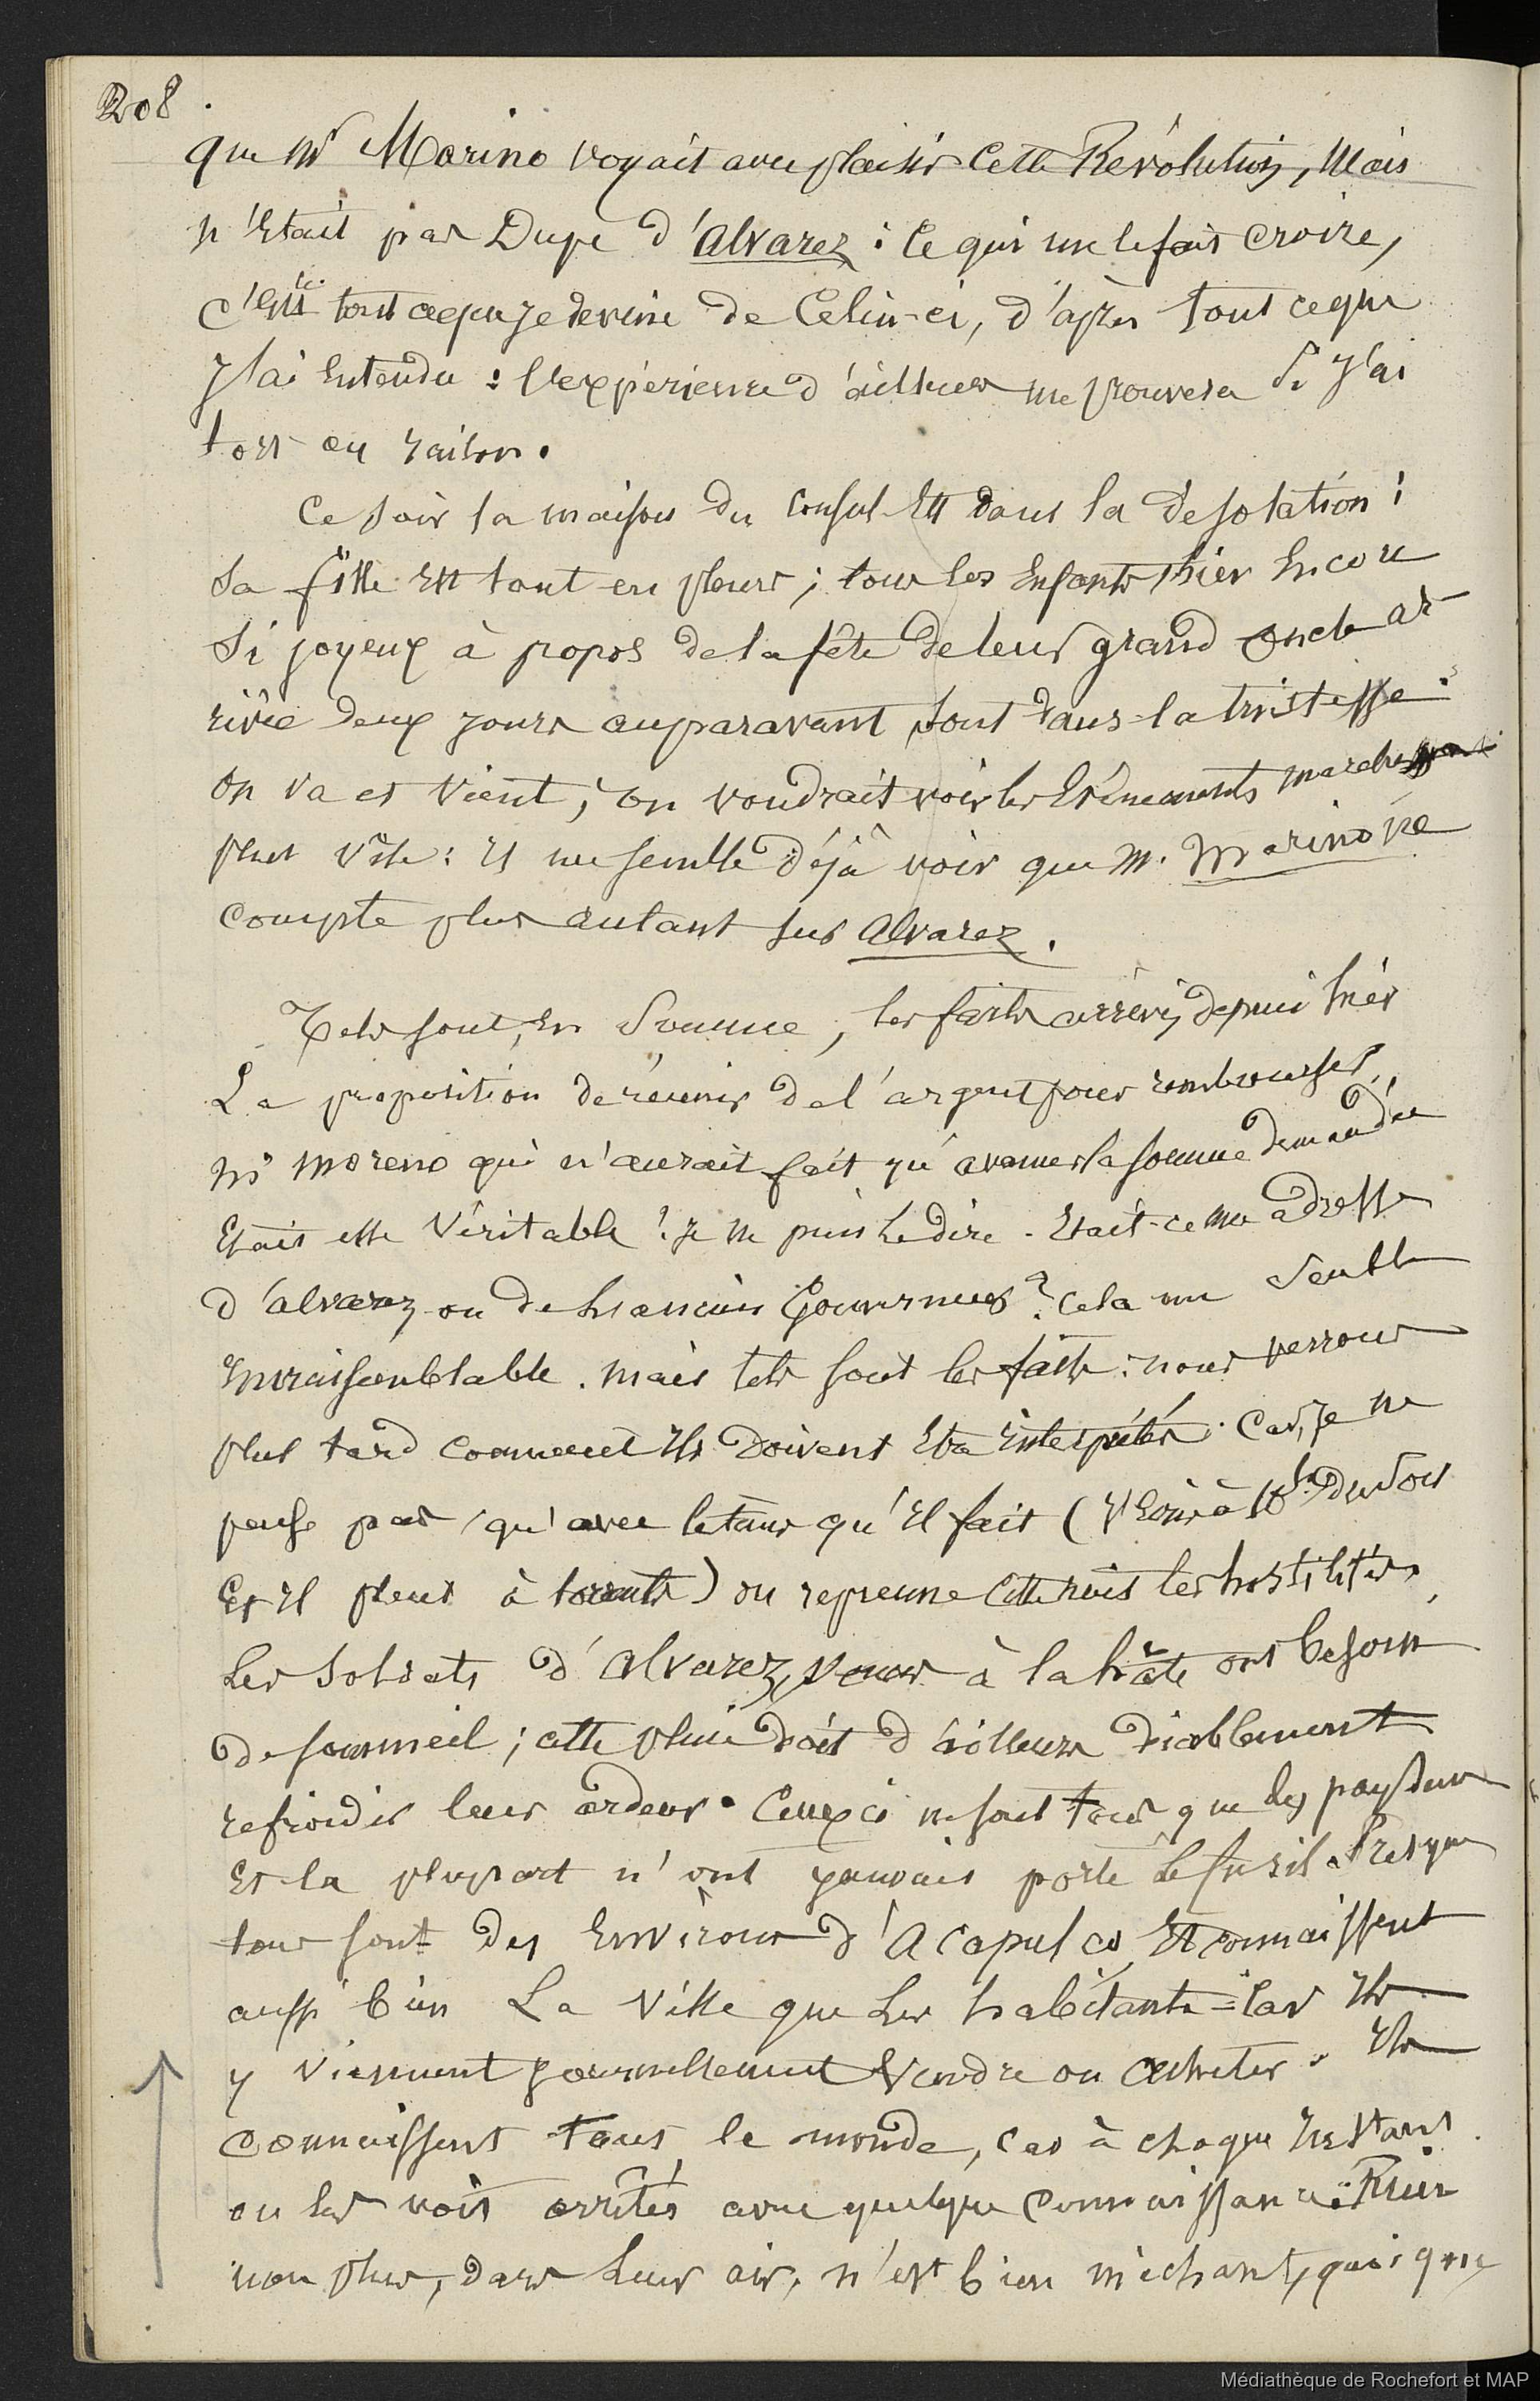 208.
que Mr Marino voyait avec plaisir Cette Révolution, Mais
n'était pas Dupe d'Alvarez : Ce qui me le fait croire,
c'est tout ce que je devine de Celui-ci, d'après tout ce que
j'ai Entendu : l'expérience d'ailleurs me prouvera si j'ai
tort ou raison.
Ce soir la maison du Consul Est dans la désolation ;
Sa fille Est tout en pleurs ; tous les Enfants hier Encore
si joyeux à propos de la fête de leur grand Oncle ar
rivée deux jours auparavant, sont dans la tristesse :
on va et vient ; on voudrait voir les Evénements marcher
plus vite : Il me semble déjà voir que M. Marino ne
compte plus autant sur Alvarez.
Tels sont, en Somme, les faits arrivés depuis hier
La proposition de réunir de l'argent pour rembourser
Mr Moreno qui n'aurait fait qu'avancer la somme demandée
Etait elle Véritable ? je ne puis le dire. Etait-ce une adresse
d'Alvarez ou de l'ancien Gouverneur ? Cela me semble
Invraisemblable. Mais tels sont les faits : nous verrons
plus tard comment Ils doivent Etre interprétés. Car, je ne
pense pas qu'avec le tems qu'Il fait (10h du soir
Et Il pleut à torrents) on reprenne Cette nuit les hostilités,
Les Soldats d'Alvarez, venus à la hâte ont besoin
de sommeil ; cette pluie doit d'ailleurs diablement
refroidir leur ardeur. Ceux ci ne sont tous que des paysans
Et la plupart n'ont jamais porté le fusil. Presque
tous sont des Environs d'Acapulco Et connaissent
aussi bien La Ville que Les habitants = Car Ils
y viennent journellement Vendre ou acheter. Ils
connaissent tout le monde, car à chaque Instant
on les voit arrêtés avec quelque connaissance. Rien
non plus, dans leur air, n'est bien méchant, quoique
Médiathèque de Rochefort et MAP